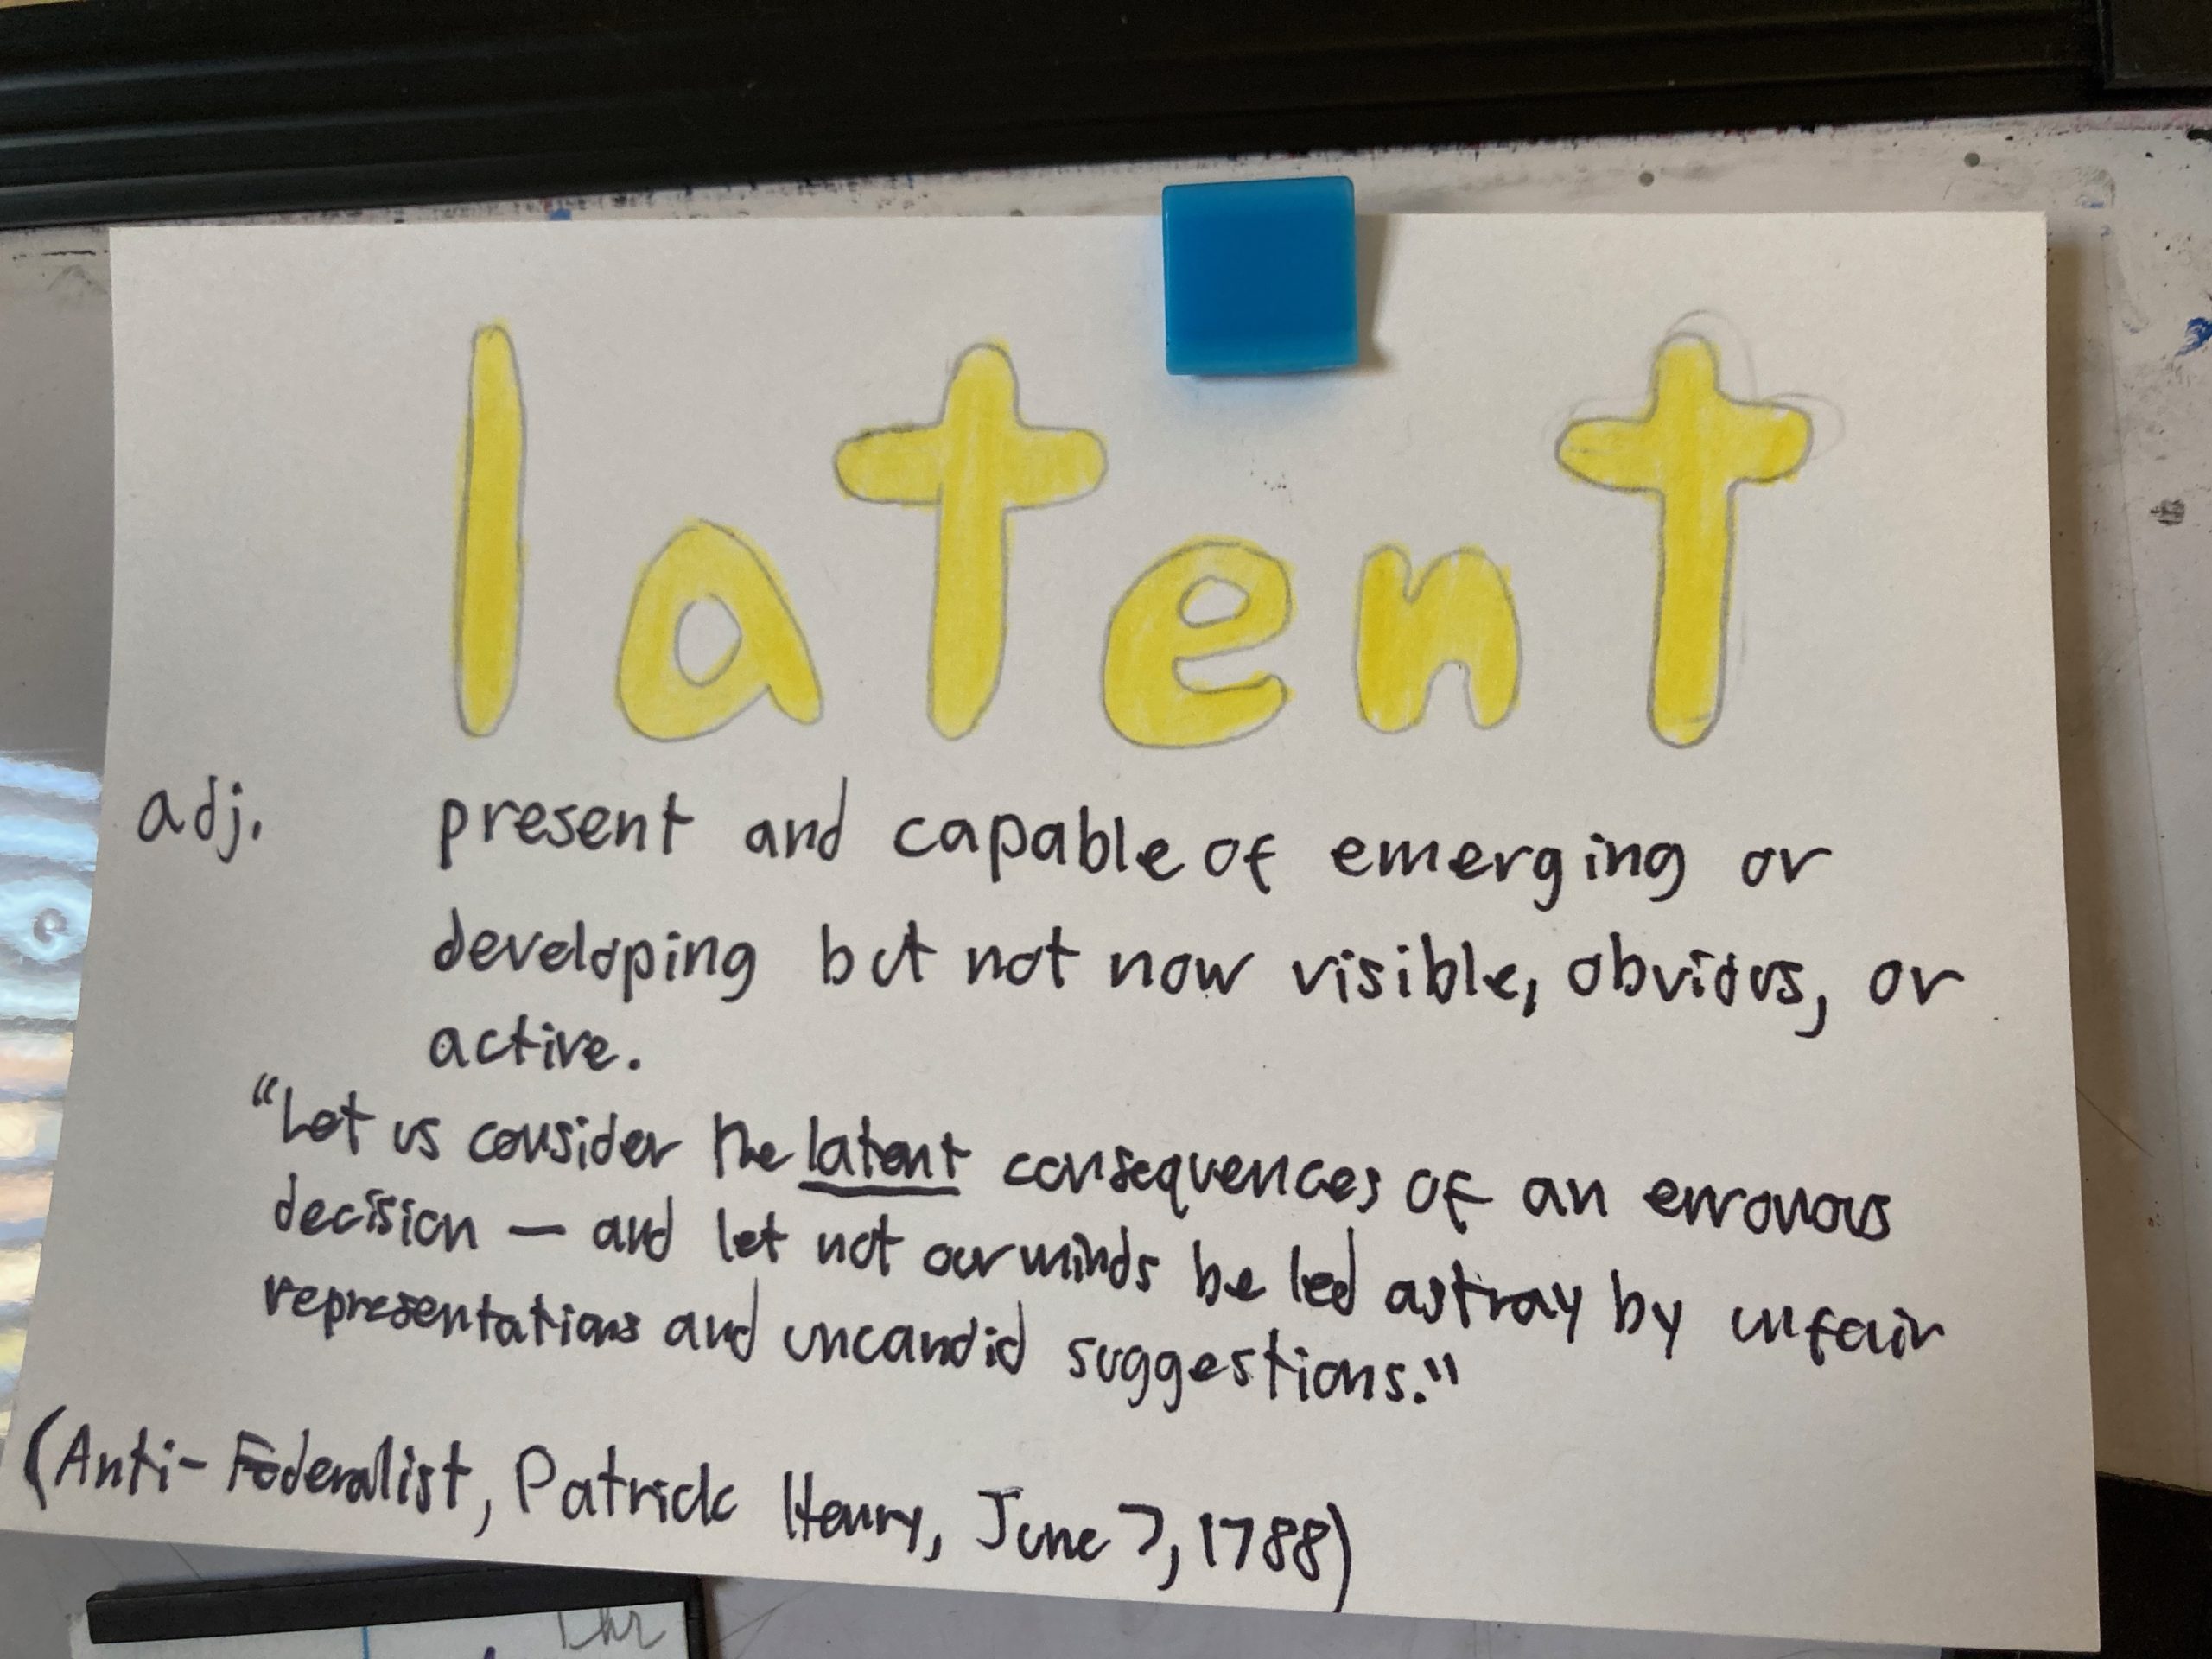 latent
adj. present and capable of emerging or
developing but not now visible, obvious, or
active.
"Let us consider the latent consequences of an erronous
decision — and let not our minds be led astray by unfair
representations and uncandid suggestions."
(Anti-Federalist, Patrick Henry, June 7, 1788)
1 hr